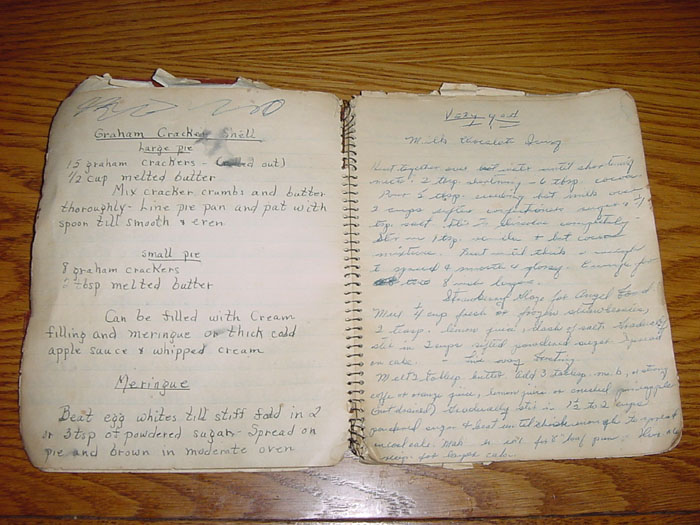 Graham Cracker Shell
Large pie
15 graham crackers - (rolled out)
1/2 cup melted butter
Mix cracker crumbs and butter
thoroughly - Line pie pan and pat with
spoon till smooth & even
Small pie
8 graham crackers
tbsp melted butter
Can be filled with Cream
filling and meringue or thick cold
apple sauce & whipped cream
Meringue
Beat egg whites till stiff fold in 2
or 3 tsp of powdered sugar - Spread on
pie and brown in moderate oven
Very good
Milk Chocolate Icing
together over hot water until shortening
melts. 2 tbsp. shortening - 6 tbsp. cocoa
Pour 5 tbsp. hot milk over
2 cups sifted confectioners sugar & 1/4
tsp. salt. Stir to dissolve completely.
mixture. Beat until smooth &
to spread & smooth & glossy. Enough for
8 inch layers.
Strawberry Glaze for Angel Food
Melt 1/4 cup fresh or frozen strawberries,
2 tsp. lemon juice, dash of salt. Gradually
stir in 2 cups sifted powdered sugar. Spread
on cake.
Melt 2 tablesp. butter. Add 3 tablesp. milk, or strong
coffee or orange juice, lemon juice or crushed pineapple
(not drained). Gradually stir in 1 1/2 to 2 cups
powdered sugar & beat until thick enough to spread
for layer cake.